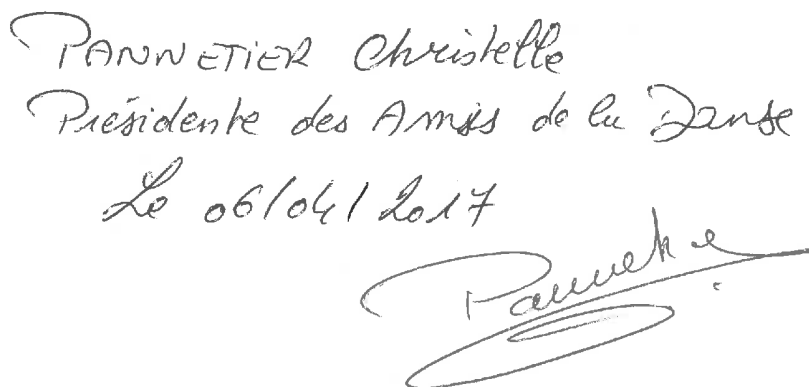 PANNETIER Christelle
Présidente des Amis de la Danse
Le 06/04/2017
Pannetier